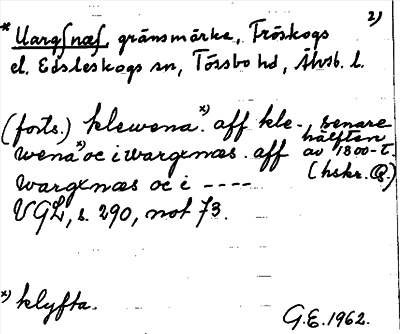 2)
* Uargsnæs, gränsmärke, Fröskogs
el. Edsleskogs sn, Tössbo hd, Älvsb. l.
(forts.) klewena.ˣ⁾ aff kle-, senare
wenaˣ⁾ oc i wargxnæs. aff hälften av 1800-t.
wargxnæs oc i ---- (hskr. B.)
VGL, s. 290, not 73.
ˣ⁾ klyfta.
G.E. 1962.